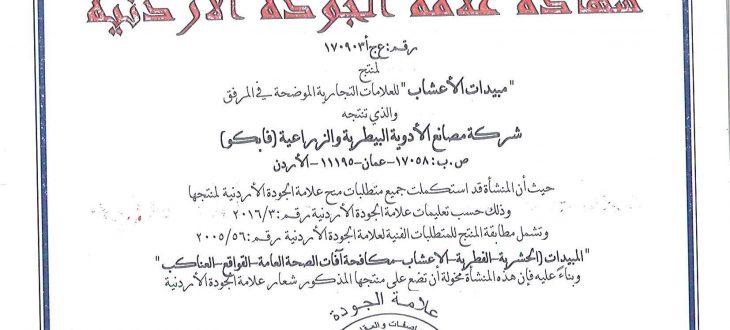 شهادة علامة الجودة الأردنية
رقم: ع ج أ ١٧٠٩٠٣
لمنتج
"مبيدات الأعشاب" للعلامات التجارية الموضحة في المرفق
والذي تنتجه
شركة مصانع الأدوية البيطرية والزراعية (فابكو)
ص.ب: ١٧٠٥٨-عمان-١١١٩٥-الأردن
حيث أن المنشأة قد استكملت جميع متطلبات منح علامة الجودة الأردنية لمنتجها
وذلك حسب تعليمات علامة الجودة الأردنية رقم: ٢٠١٦/٣
وتشمل مطابقة المنتج للمتطلبات الفنية لعلامة الجودة الأردنية رقم: ٢٠٠٥/٥٦
"المبيدات (الحشرية-الفطرية-الاعشاب-مكافحة آفات الصحة العامة-القواقع-العناكب"
وبناءً عليه فإن هذه المنشأة مخولة أن تضع على منتجها المذكور شعار علامة الجودة الأردنية
علامة الجودة